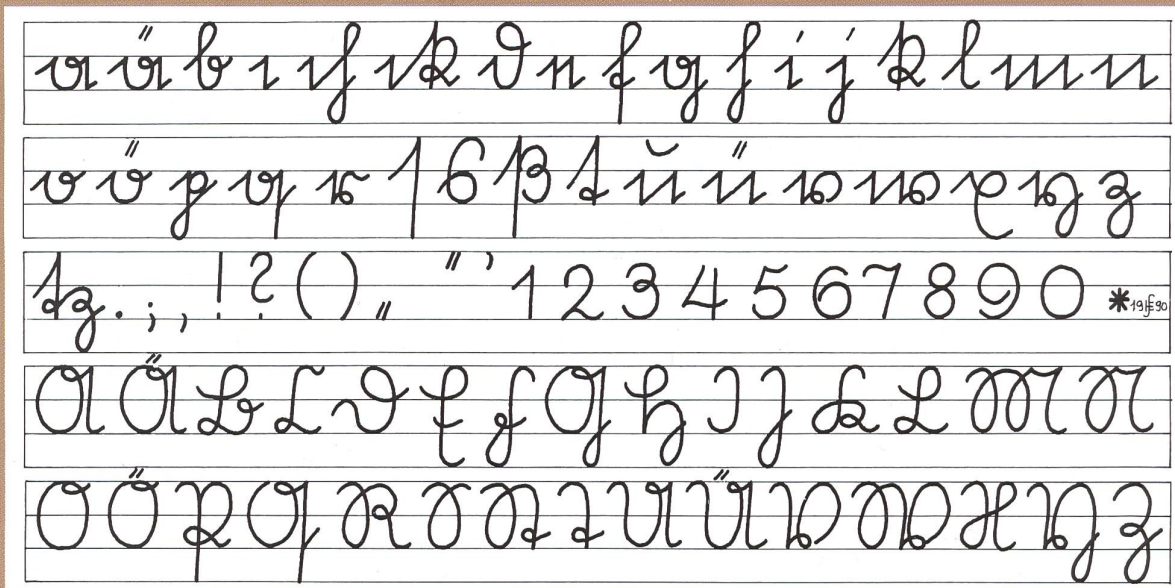 a ä b c ch ck d e f g h i j k l m n
o ö p q r ſ s ß t u ü v w x y z
tz . ; , ! ? ( ) „ “ ’ 1 2 3 4 5 6 7 8 9 0
A Ä B C D E F G H I J K L M N
O Ö P Q R S St T U Ü V W X Y Z